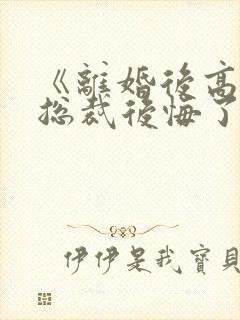 《離婚後高
總裁後悔了
伊伊是我寶貝